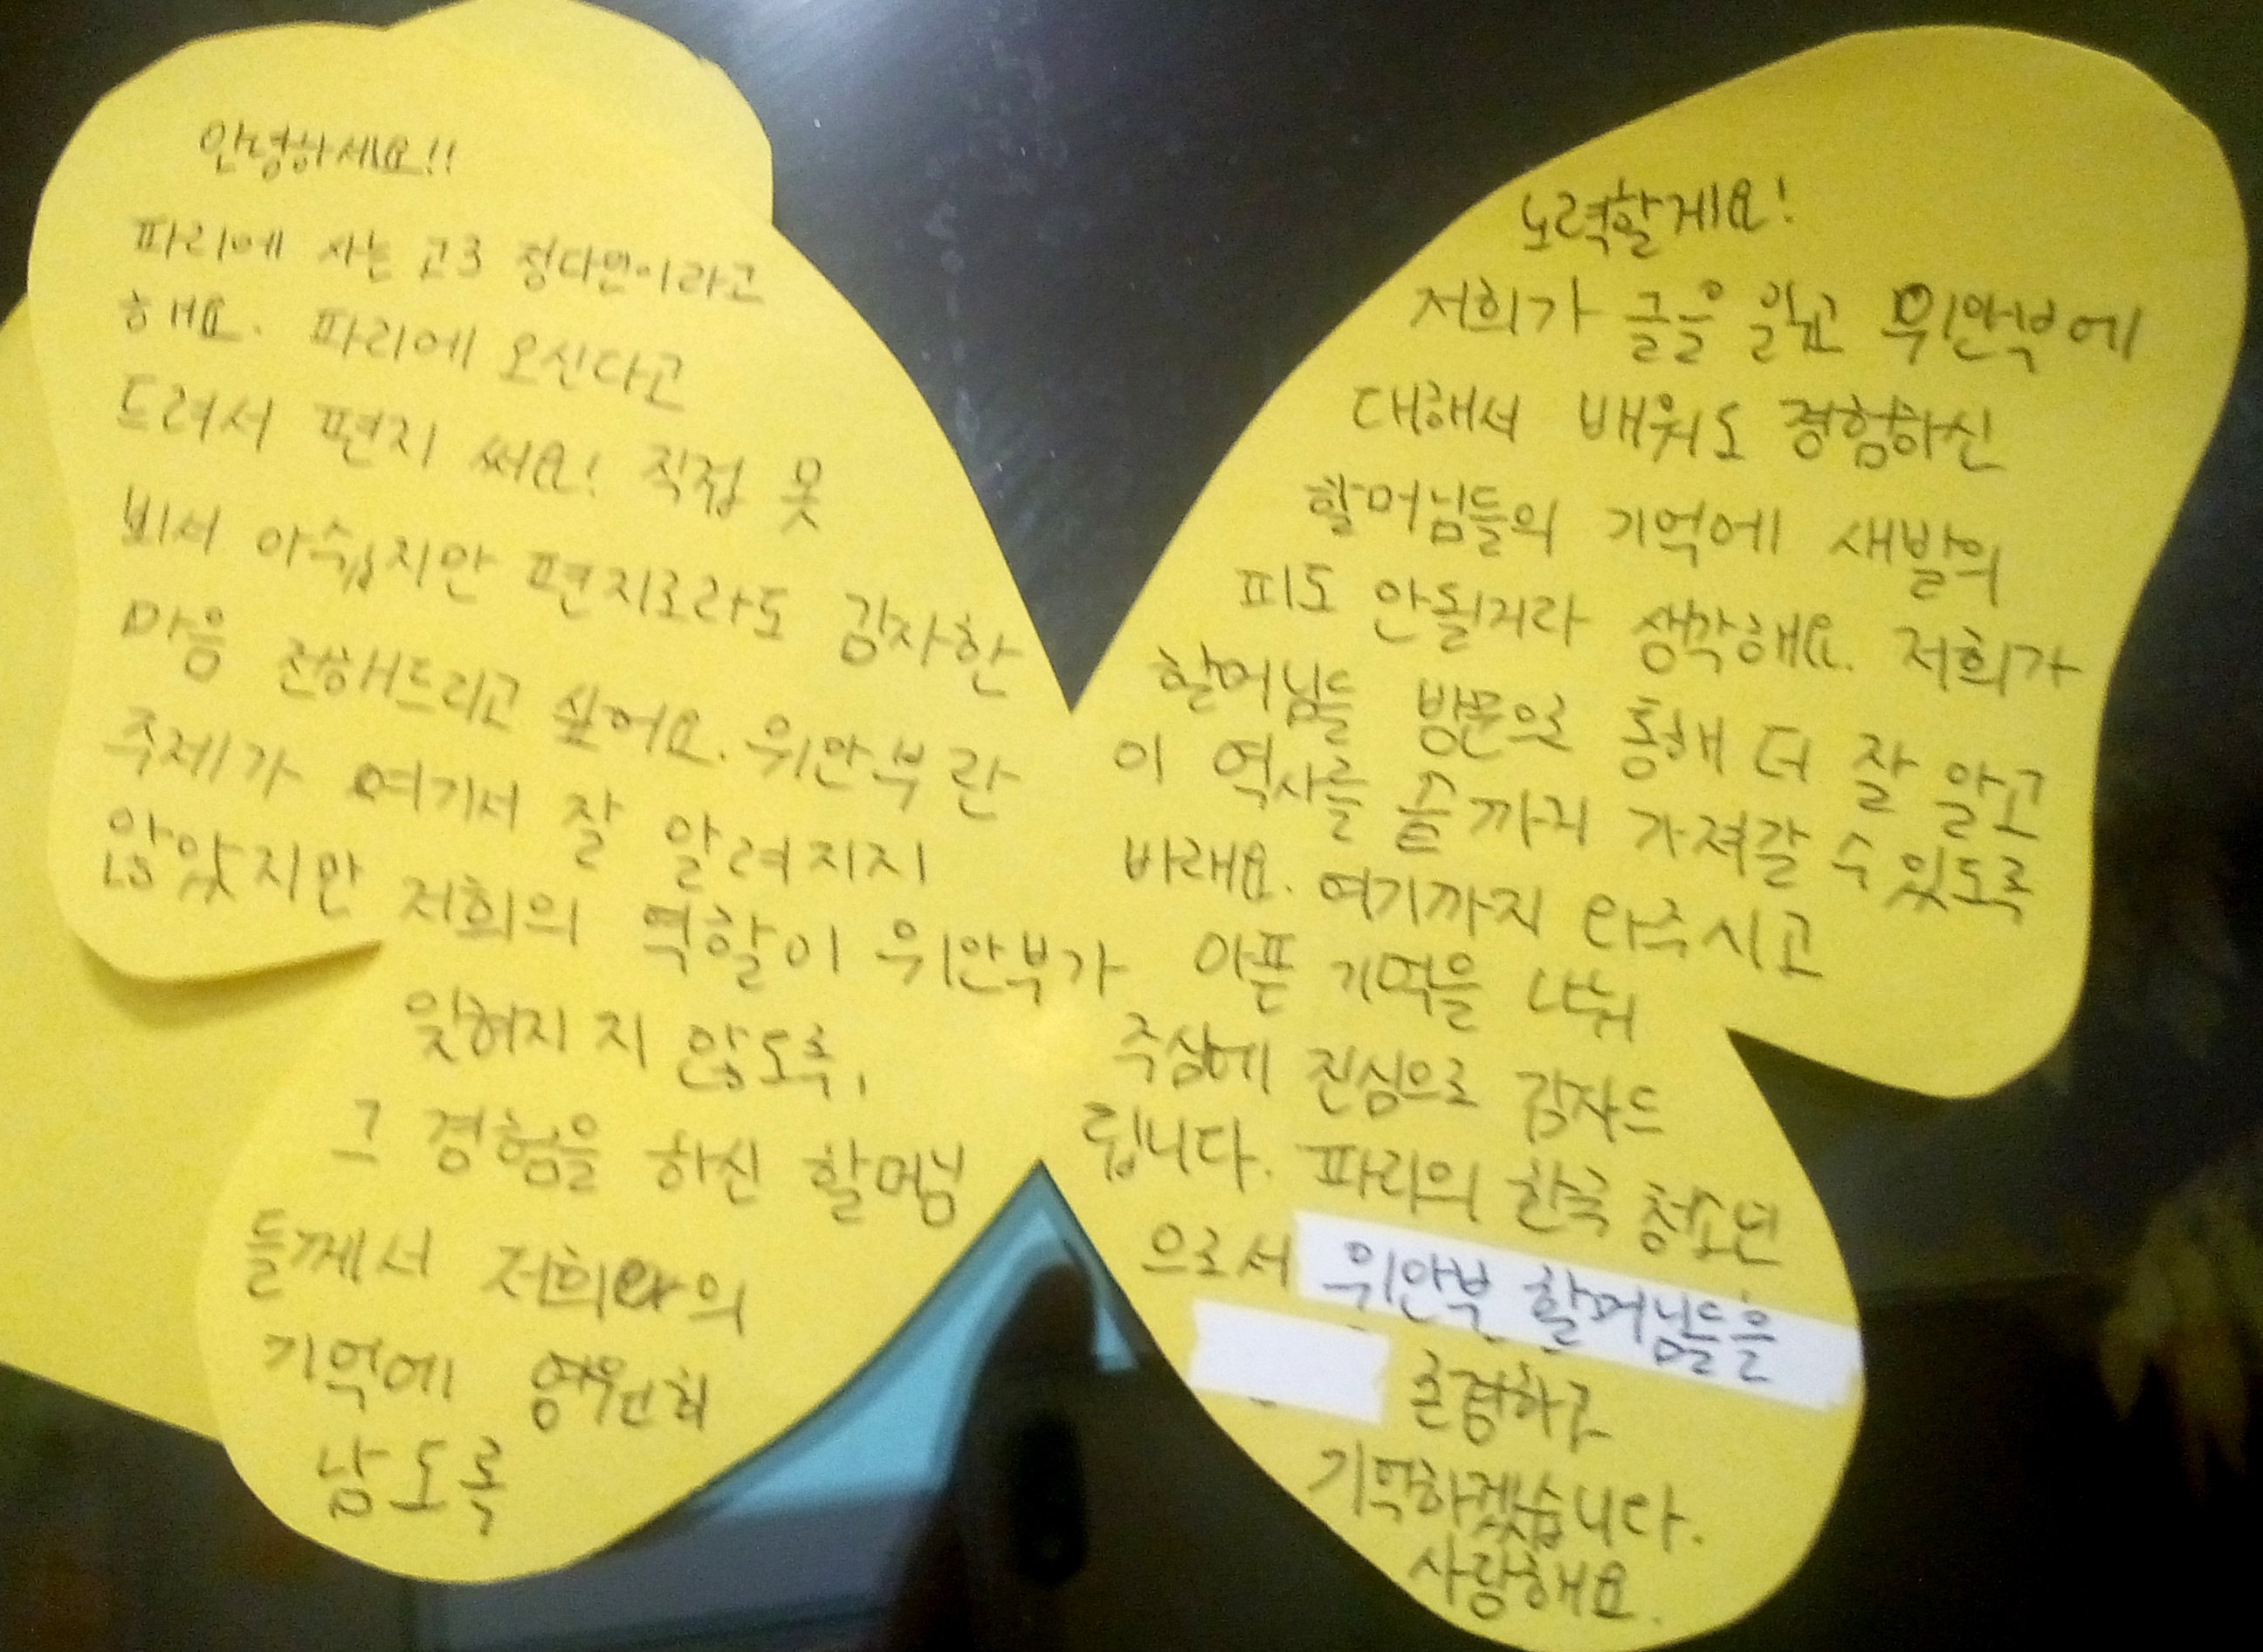 안녕하세요!!
파리에 사는 고3 정다연이라고
해요. 파리에 오신다고
드려서 편지 써요! 직접 못
뵈서 아쉽지만 편지로라도 감사한
마음 전해드리고 싶어요. 위안부란
주제가 여기서 잘 알려지지
않았지만 저희의 역할이 위안부가
잊혀지지 않도록,
그 경험을 하신 할머님
들께서 저희와의
기억에 영원히
남도록
노력할게요!
저희가 글을 읽고 위안부에
대해서 배워도 경험하신
할머님들의 기억에 새발의
피도 안될거라 생각해요. 저희가
할머님들 방문으로 통해 더 잘 알고
이 역사를 끝까지 가져갈 수 있도록
바래요. 여기까지 와주시고
아픈 기억을 나눠
주심에 진심으로 감사드
립니다. 파리의 한국 청소년
으로서 위안부 할머님들을
존경하고
기억하겠습니다.
사랑해요.